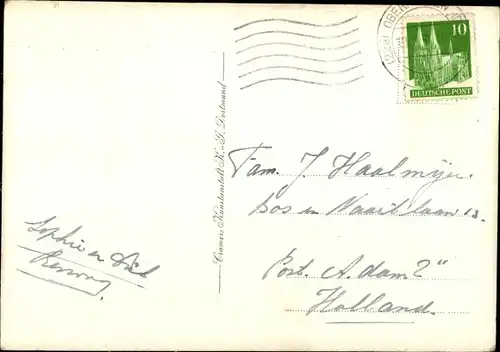 (22a) OBER
10
DEUTSCHE POST
Cramers Kunstanstalt K.-G. Dortmund
Fam. J. Haalmeijer.
Bos en Vaart laan 13.
Post. A.dam 2"
Holland.
Sophie en